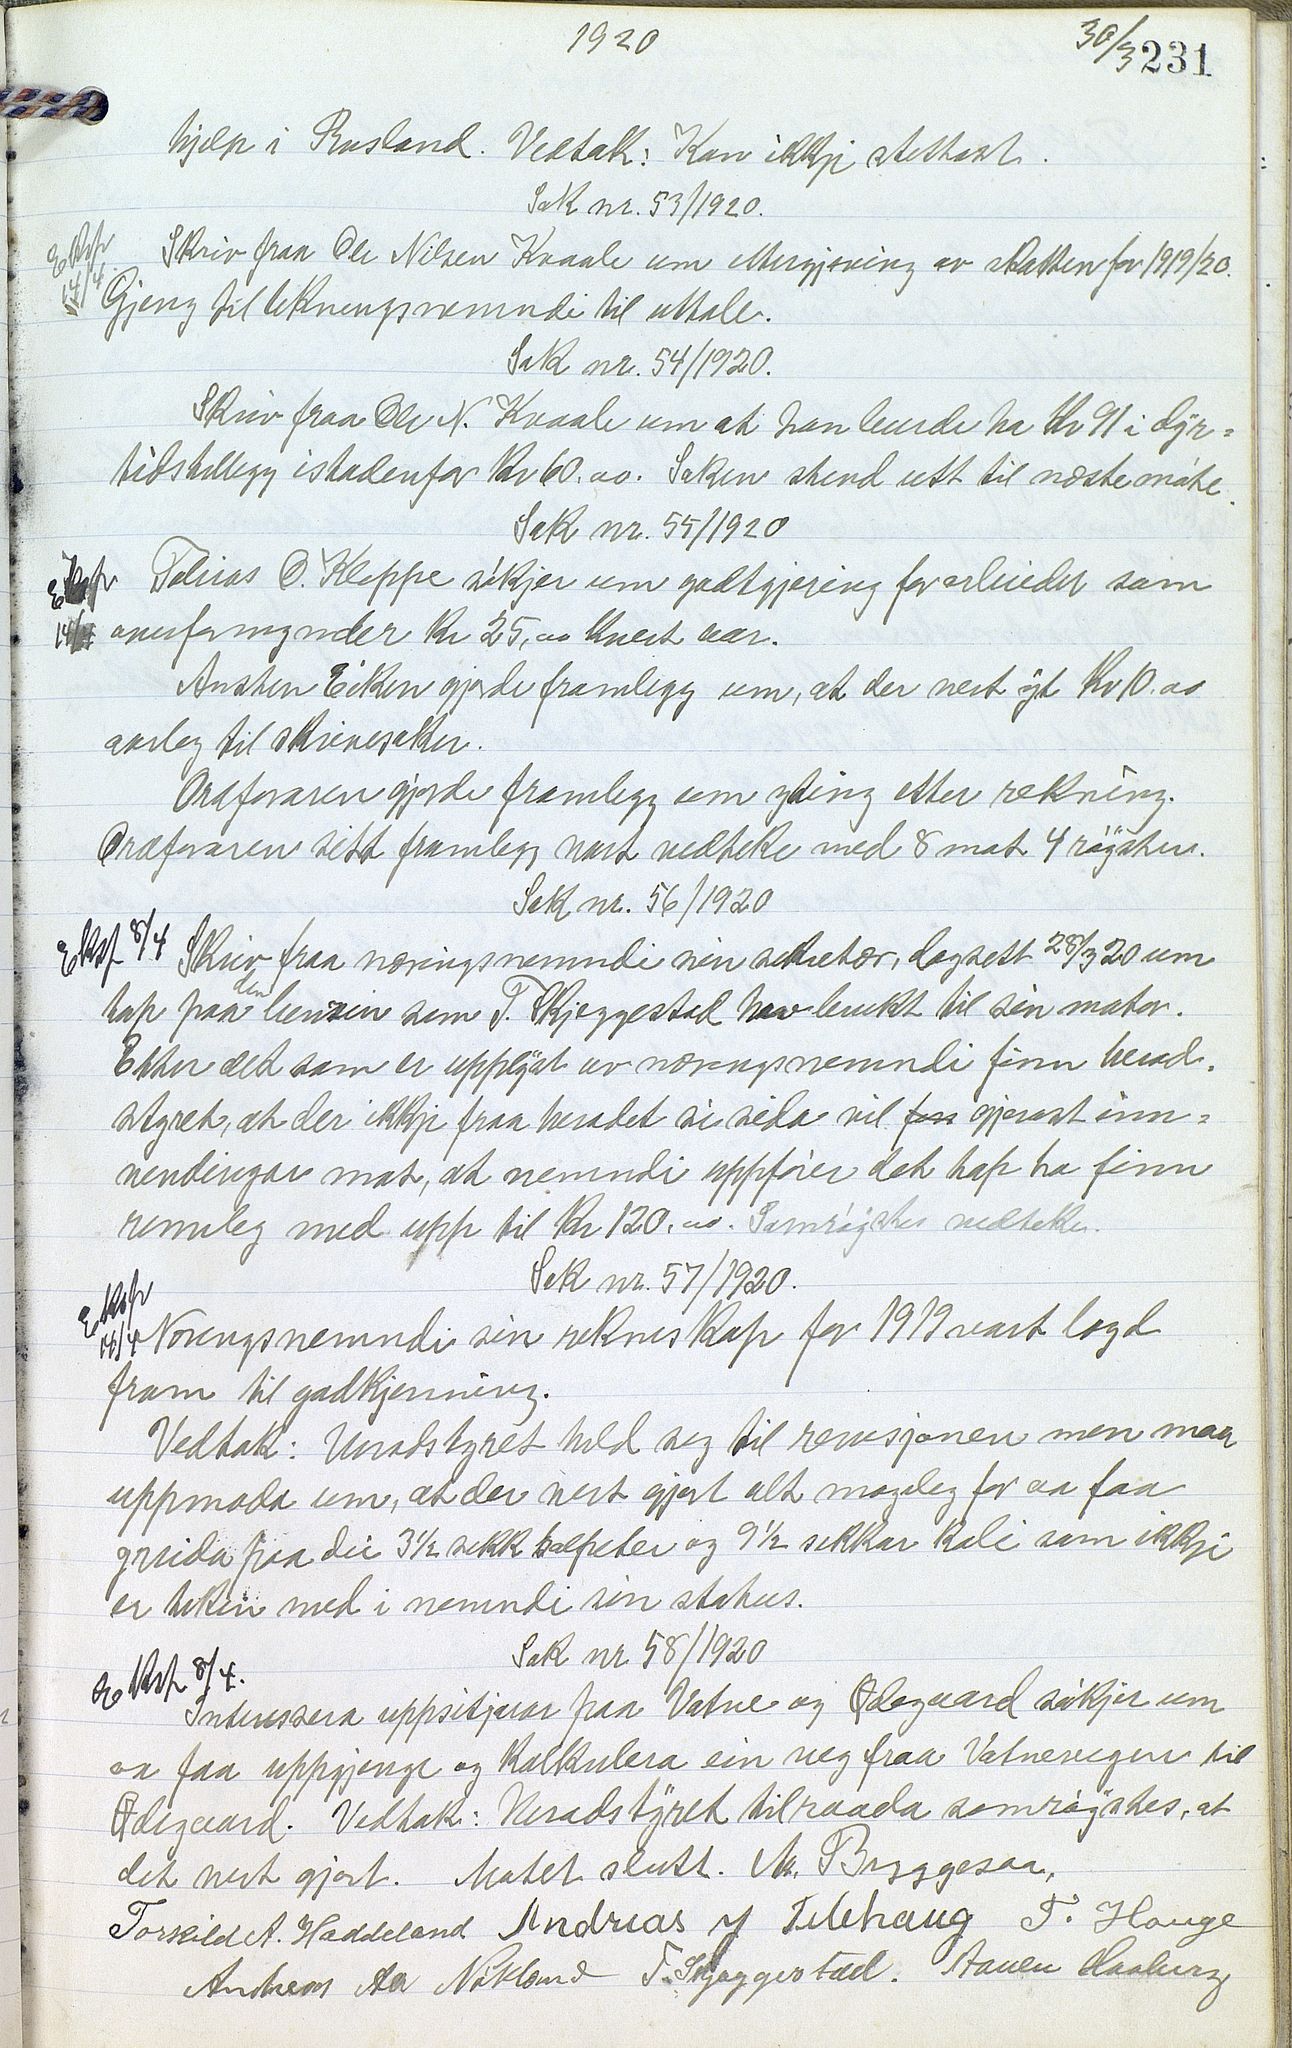 1920
30/3 231
hjelp i Rusland. Vedtak: Kan ikkji stettast.
Sak nr. 53/1920.
Eksp 14/4
Skriv fraa Ole Nilsen Kvaale um ettergjeving av skatten for 1919/20.
Gjeng til likningsnemndi til uttale.
Sak nr. 54/1920.
Skriv fraa Ole N. Kvaale um at han burde ha kr 91 i dyr-
tidstillegg istadenfor kr 60.00. Saken stend utt til næste møte.
Sak nr. 55/1920
Eksp 14/4
Tobias O. Kleppe søkjer um godtgjering for arbeidet som
overformynder kr 25,00 kvert aar.
Austen Eiken gjorde framlegg um, at der vert yt kr 10.00
aarleg til skrivesaker.
Ordføraren gjorde framlegg um yting etter rekning.
Ordføraren sitt framlegg vart vedteke med 8 mot 4 røyster.
Sak nr. 56/1920
Eksp 8/4
Skriv fraa næringsnemndi sin sekretær, dagsett 28/3 20 um
tap paa den bensin som T. Skjeggestad hev brukt til sin motor.
Etter det som er upplyst av næringsnemndi finn herad-
styret, at der ikkje fraa heradet si sida vil før gjerast inn-
vendingar mot, at nemndi uppfører det tap ho finn
rimeleg med upp til kr 120.00. Samrøystes vedteke.
Sak nr. 57/1920.
Eksp 14/4
Næringsnemndi sin rekneskap for 1919 vart lagd
fram til godkjenning.
Vedtak: Heradstyret held seg til revisjonen men maa
uppmoda um, at der vert gjort alt mogleg for aa faa
greida paa dei 3½ sekk salpeter og 9½ sekkar kali som ikkje
er teken med i nemndi sin status.
Sak nr 58/1920
Eksp 8/4.
Interessera uppsitjarar fraa Vatne og Ødegaard søkjer um
aa faa uppgjenge og kalkulera ein veg fraa Vatnevegen til
Ødegaard. Vedtak: Heradstyret tilraada samrøystes, at
det vert gjort. Møtet slutt. M. Bryggesaa,
Torkild A. Haddeland Andreas Telhaug T. Hauge
Andreas Aa Nökland T. Skjeggestad. Aanen Haaberg